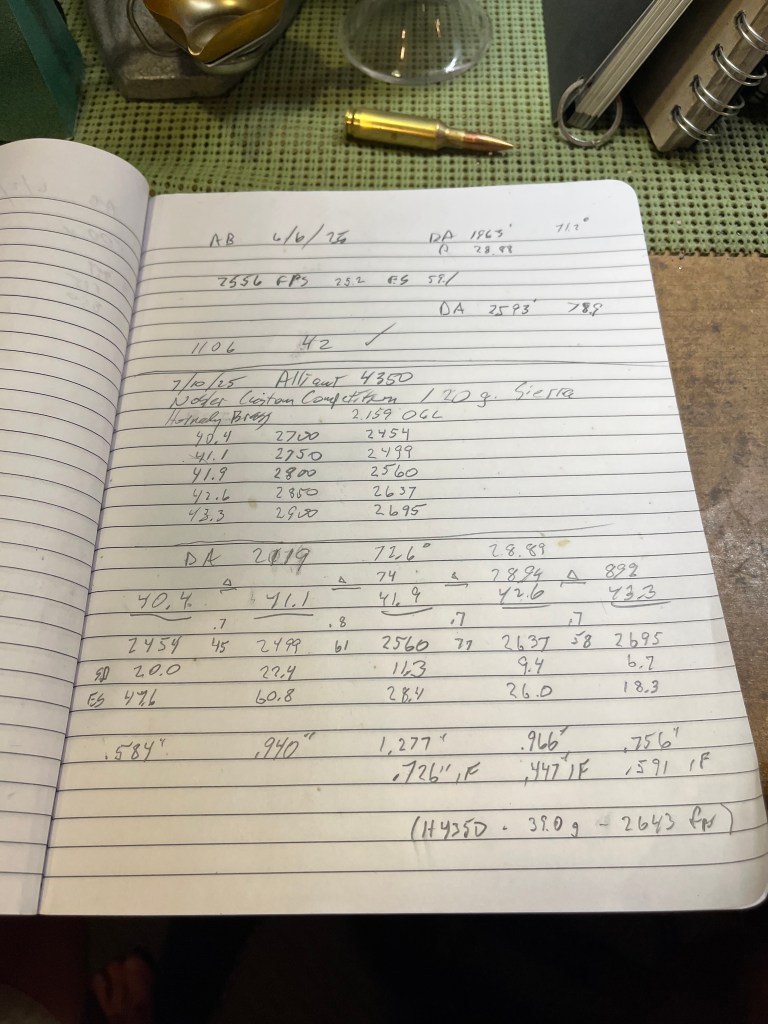 AB 6/6/25 DA 1963' 71.2°
28.88
2556 FPS 25.2 ES 59.1
DA 2593' 78.9
1106 42 ✓
7/10/25 Alliant 4350
Nosler Custom Competition 120 g. Sierra
Hornady Brass 2.159 OGL
40.4 2700 2454
41.1 2750 2499
41.9 2800 2560
42.6 2850 2637
43.3 2900 2695
DA 2119 72.6° 28.89
Δ Δ 74 Δ 2894 Δ 892
40.4 41.1 41.9 42.6 43.3
.7 .8 .7 .7
2454 45 2499 61 2560 77 2637 58 2695
SD 20.0 22.4 11.3 9.4 6.7
ES 47.6 60.8 28.4 26.0 18.3
.584" .940" 1.277" .966" .756"
.726" 1F .447" 1F .591 1F
(H4350 - 39.0 g - 2643 fps)